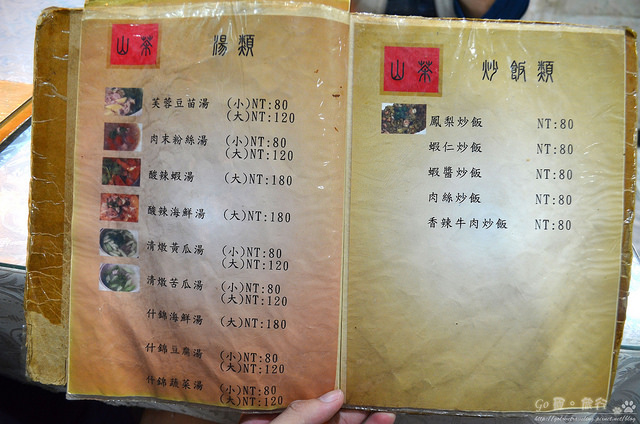 山茶 湯類
芙蓉豆苗湯 (小)NT:80
(大)NT:120
肉末粉絲湯 (小)NT:80
(大)NT:120
酸辣蝦湯 (大)NT:180
酸辣海鮮湯 (大)NT:180
清燉黃瓜湯 (小)NT:80
(大)NT:120
清燉苦瓜湯 (小)NT:80
(大)NT:120
什錦海鮮湯 (大)NT:180
什錦豆腐湯 (小)NT:80
(大)NT:120
什錦蔬菜湯 (小)NT:80
(大)NT:120
山茶 炒飯類
鳳梨炒飯 NT:80
蝦仁炒飯 NT:80
蝦醬炒飯 NT:80
肉絲炒飯 NT:80
香辣牛肉炒飯 NT:80
Go